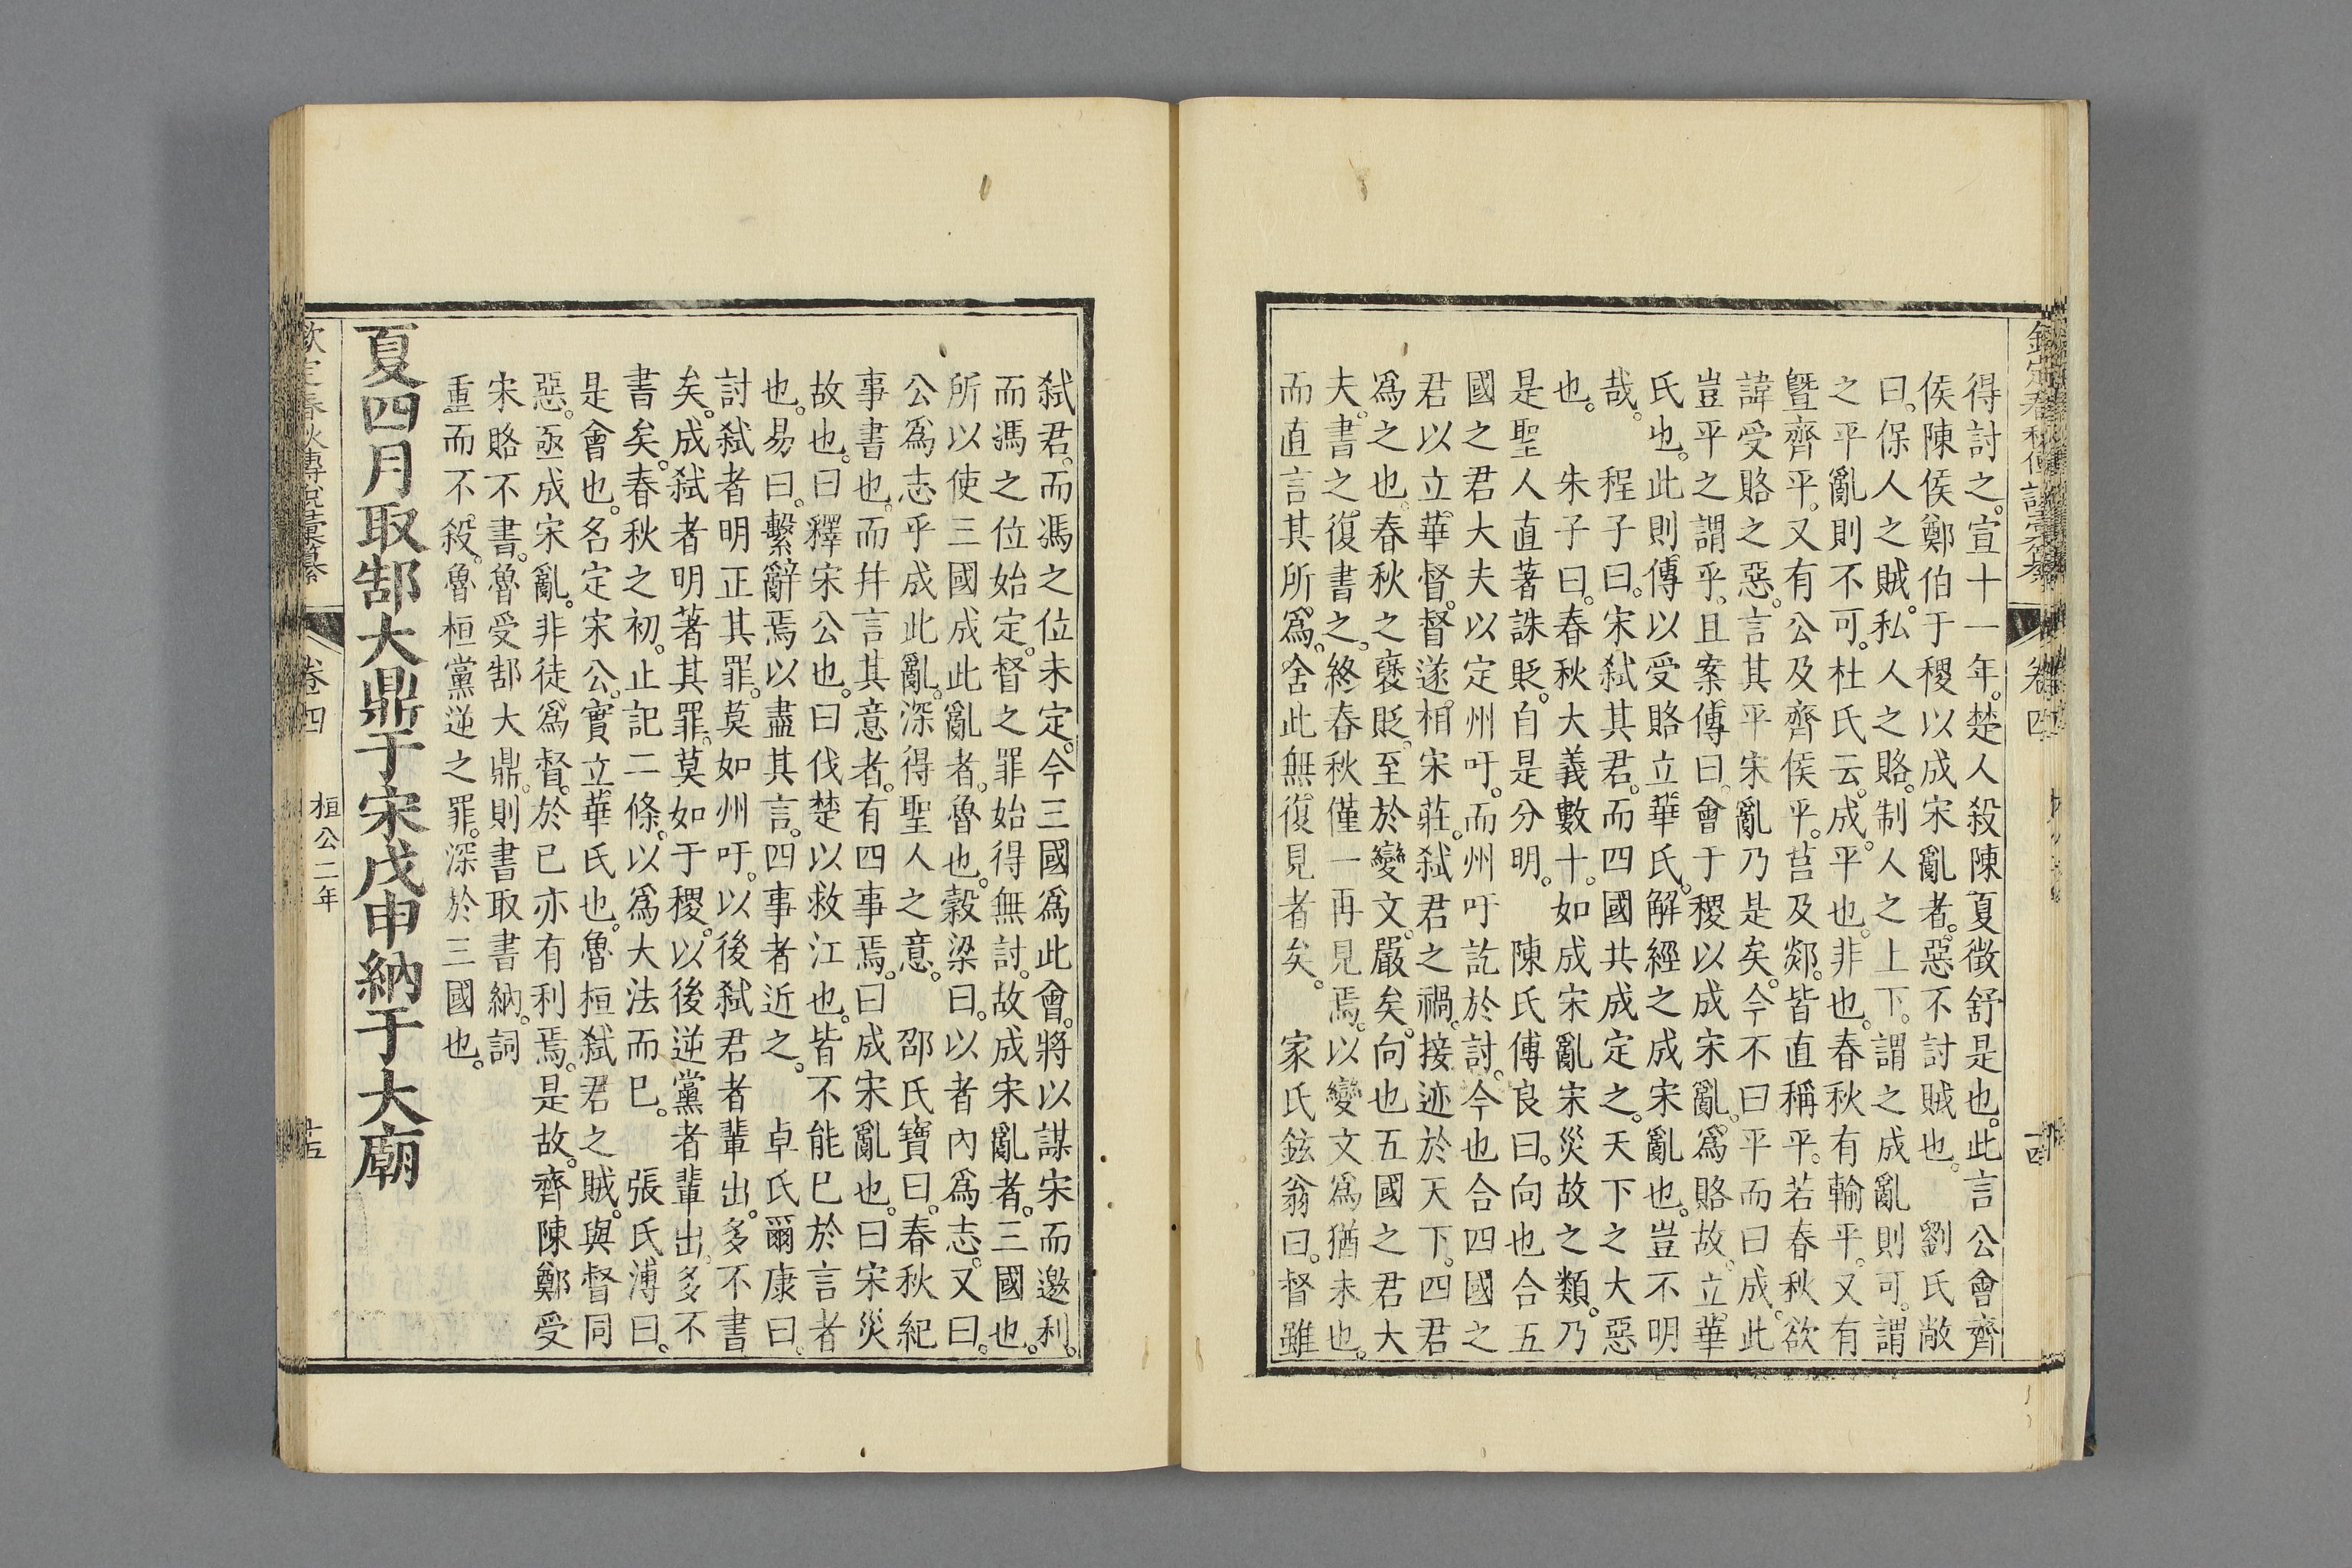 得討之。宣十一年。楚人殺陳夏徵舒是也。此言公會齊
侯陳侯鄭伯于稷以成宋亂者。惡不討賊也。　劉氏敞
曰。保人之賊。私人之賂。制人之上下。謂之成亂則可。謂
之平亂則不可。杜氏云。成。平也。非也。春秋有輸平。又有
曁齊平。又有公及齊侯平。莒及郯。皆直稱平。若春秋欲
諱受賂之惡。言其平宋亂乃是矣。今不曰平而曰成。此
豈平之謂乎。且案傳曰。會于稷以成宋亂。爲賂故。立華
氏也。此則傳以受賂立華氏。解經之成宋亂也。豈不明
哉。　程子曰。宋弑其君。而四國共成定之。天下之大惡
也。　朱子曰。春秋大義數十。如成宋亂宋災故之類。乃
是聖人直著誅貶。自是分明。　陳氏傅良曰。向也合五
國之君大夫以定州吁。而州吁訖於討。今也合四國之
君以立華督。督遂相宋莊。弑君之禍。接迹於天下。四君
爲之也。春秋之襃貶。至於變文。嚴矣。向也五國之君大
夫。書之。復書之。終春秋僅一再見焉。以變文爲猶未也。
而直言其所爲。舍此無復見者矣。　家氏鉉翁曰。督雖
弑君。而馮之位未定。今三國爲此會。將以謀宋而邀利。
而馮之位始定。督之罪始得無討。故成宋亂者。三國也。
所以使三國成此亂者。魯也。穀梁曰。以者內爲志。又曰。
公爲志乎成此亂。深得聖人之意。　邵氏寶曰。春秋紀
事書也。而幷言其意者。有四事焉。曰成宋亂也。曰宋災
故也。曰釋宋公也。曰伐楚以救江也。皆不能已於言者
也。易曰。繫辭焉以盡其言。四事者近之。　卓氏爾康曰。
討弑者明正其罪。莫如州吁。以後弑君者輩出。多不書
矣。成弑者明著其罪。莫如于稷。以後逆黨者輩出。多不
書矣。春秋之初。止記二條。以爲大法而已。　張氏溥曰。
是會也。名定宋公。實立華氏也。魯桓弑君之賊。與督同
惡。亟成宋亂。非徒爲督。於已亦有利焉。是故。齊陳鄭受
宋賂不書。魯受郜大鼎。則書取書納。詞
重而不殺。魯桓黨逆之罪。深於三國也。
夏四月取郜大鼎于宋戊申納于大廟
欽定春秋傳說彙纂　卷四　桓公二年　十五